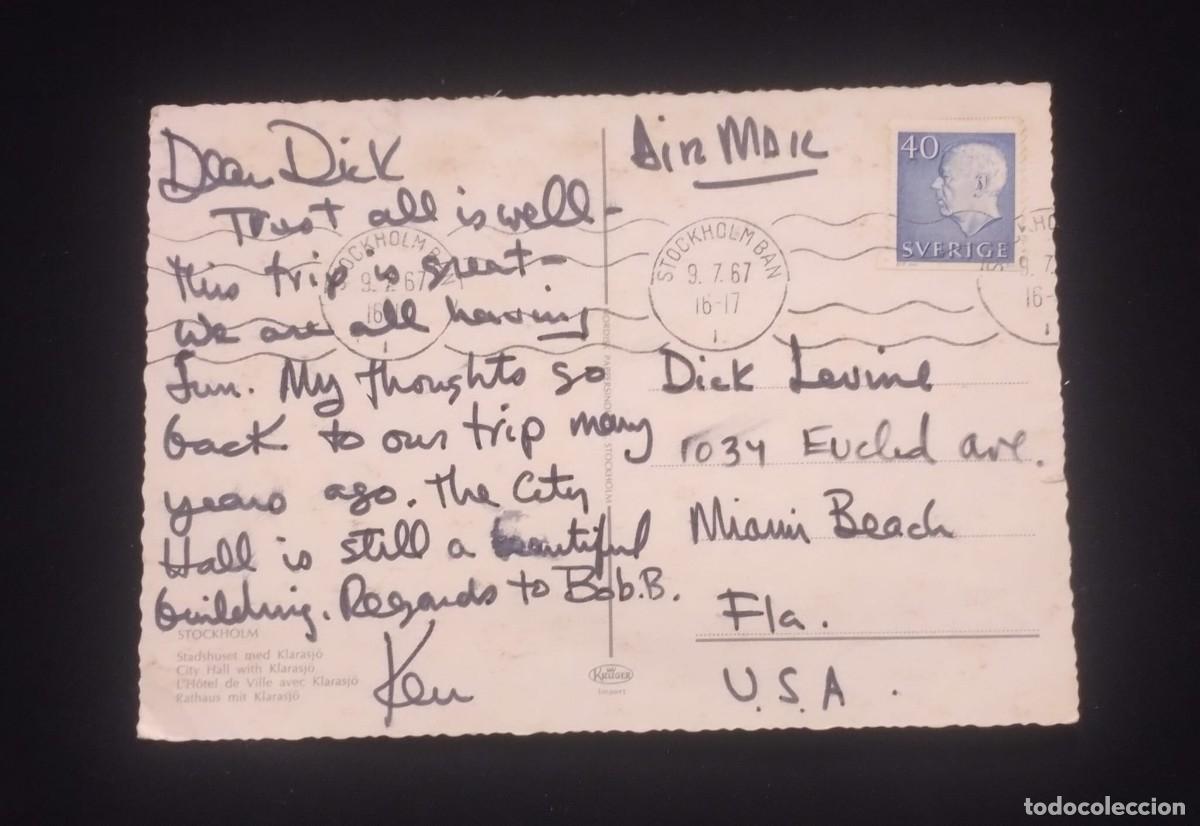 Dear Dick
Trust all is well-
this trip is great-
we are all having
fun. My thoughts go
back to our trip many
years ago. The City
Hall is still a beautiful
building. Regards to Bob.B.
Ken
STOCKHOLM
Stadshuset med Klarasjö
City Hall with Klarasjö
L'Hôtel de Ville avec Klarasjö
Rathaus mit Klarasjö
STOCKHOLM BAN
9.7.67
16-17
1
KRÜGER
Import
AiR MAIL
40
SVERIGE
STOCKHOLM BAN
9.7.67
16-17
1.
9.7.
16-
1
Dick Levine
1034 Euclid ave.
Miami Beach
Fla.
U.S.A.
todocoleccion